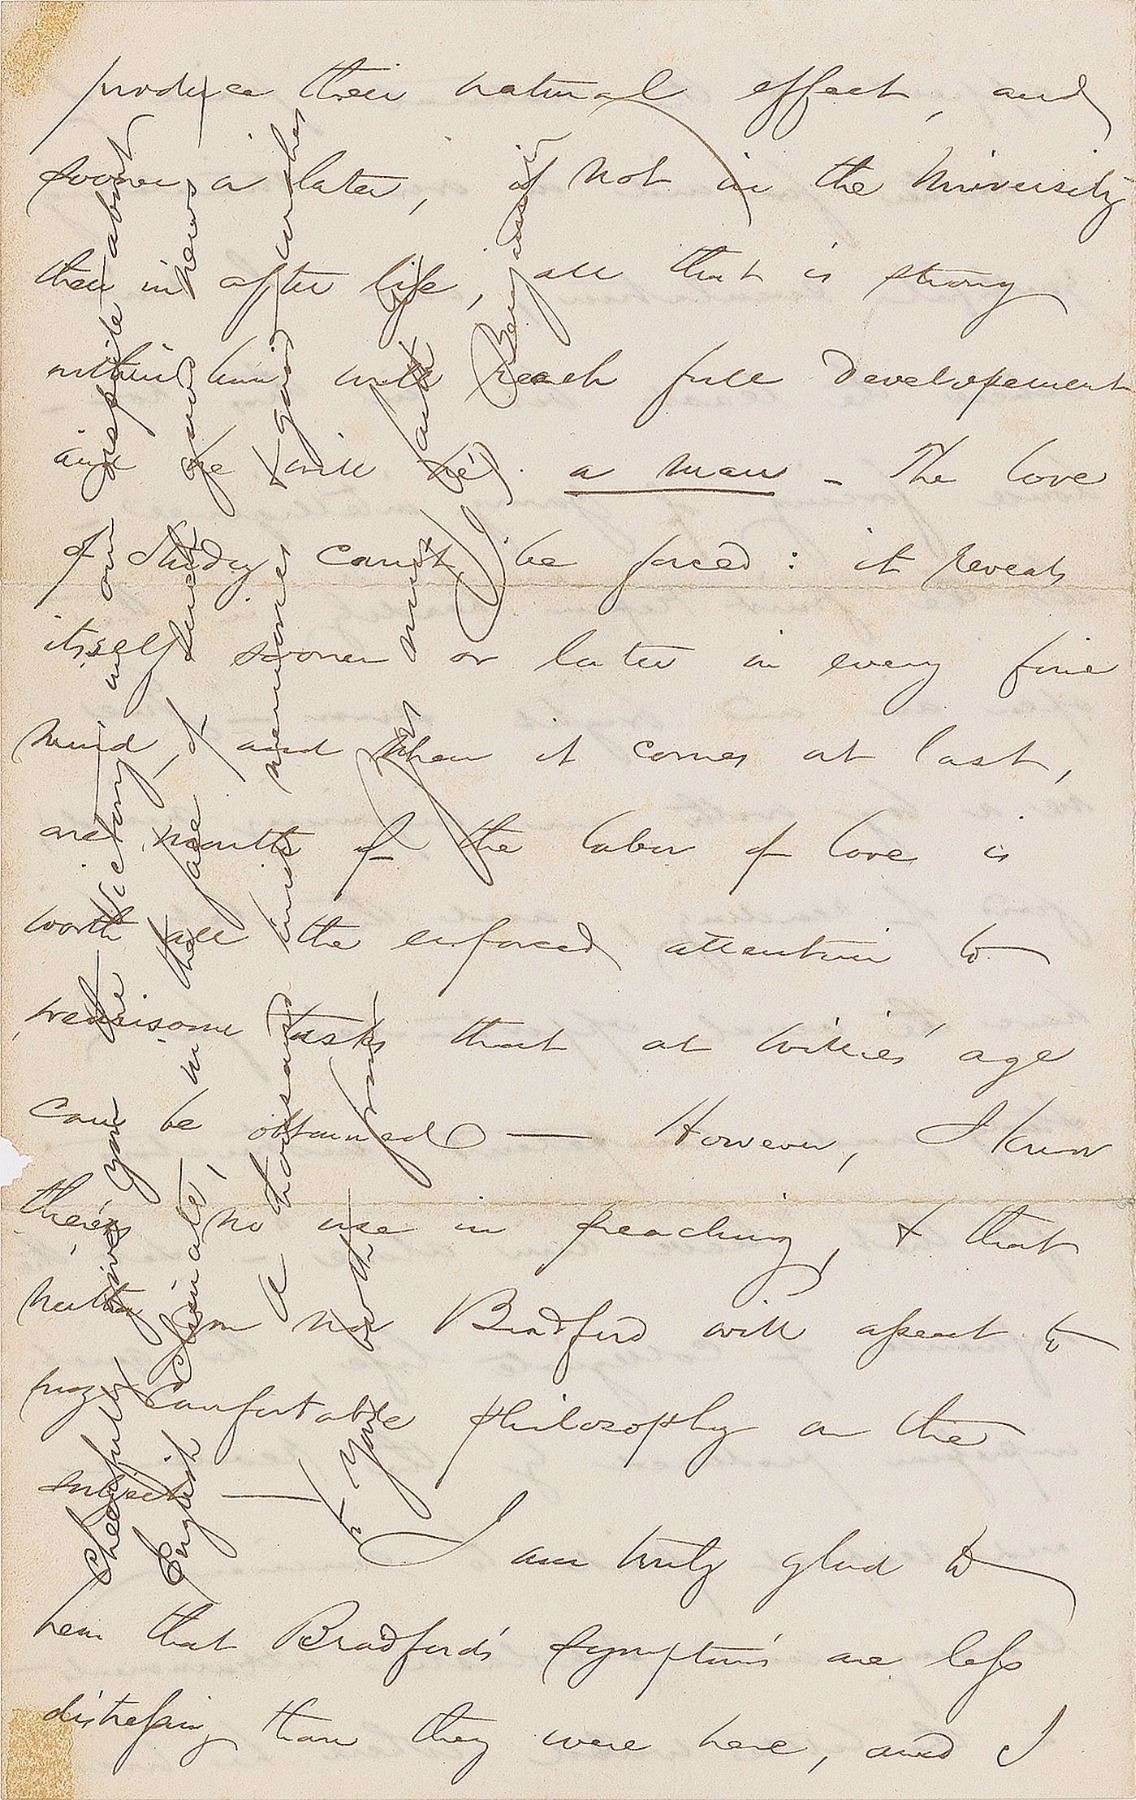 produce their natural effect, and
sooner or later, if not in the University
then in after life, all that is strong
within him will reach full developement
and he will be a man - The love
of Study can't be forced: it reveals
itself sooner or later in every fine
mind, and when it comes at last,
one month of the labor of love is
worth all the enforced attention to
wearisome tasks that at Willie's age
can be obtained — However, I know
there's no use in preaching, & that
neither you nor Bradford will assent to
my comfortable philosophy on the
subject —
I am truly glad to
hear that Bradford's symptoms are less
distressing than they were here, and I
cheerfully give you the victory in our dispute about
English climate, in the face of such good news
A thousand kind memories & good wishes
to you both from yours most aff